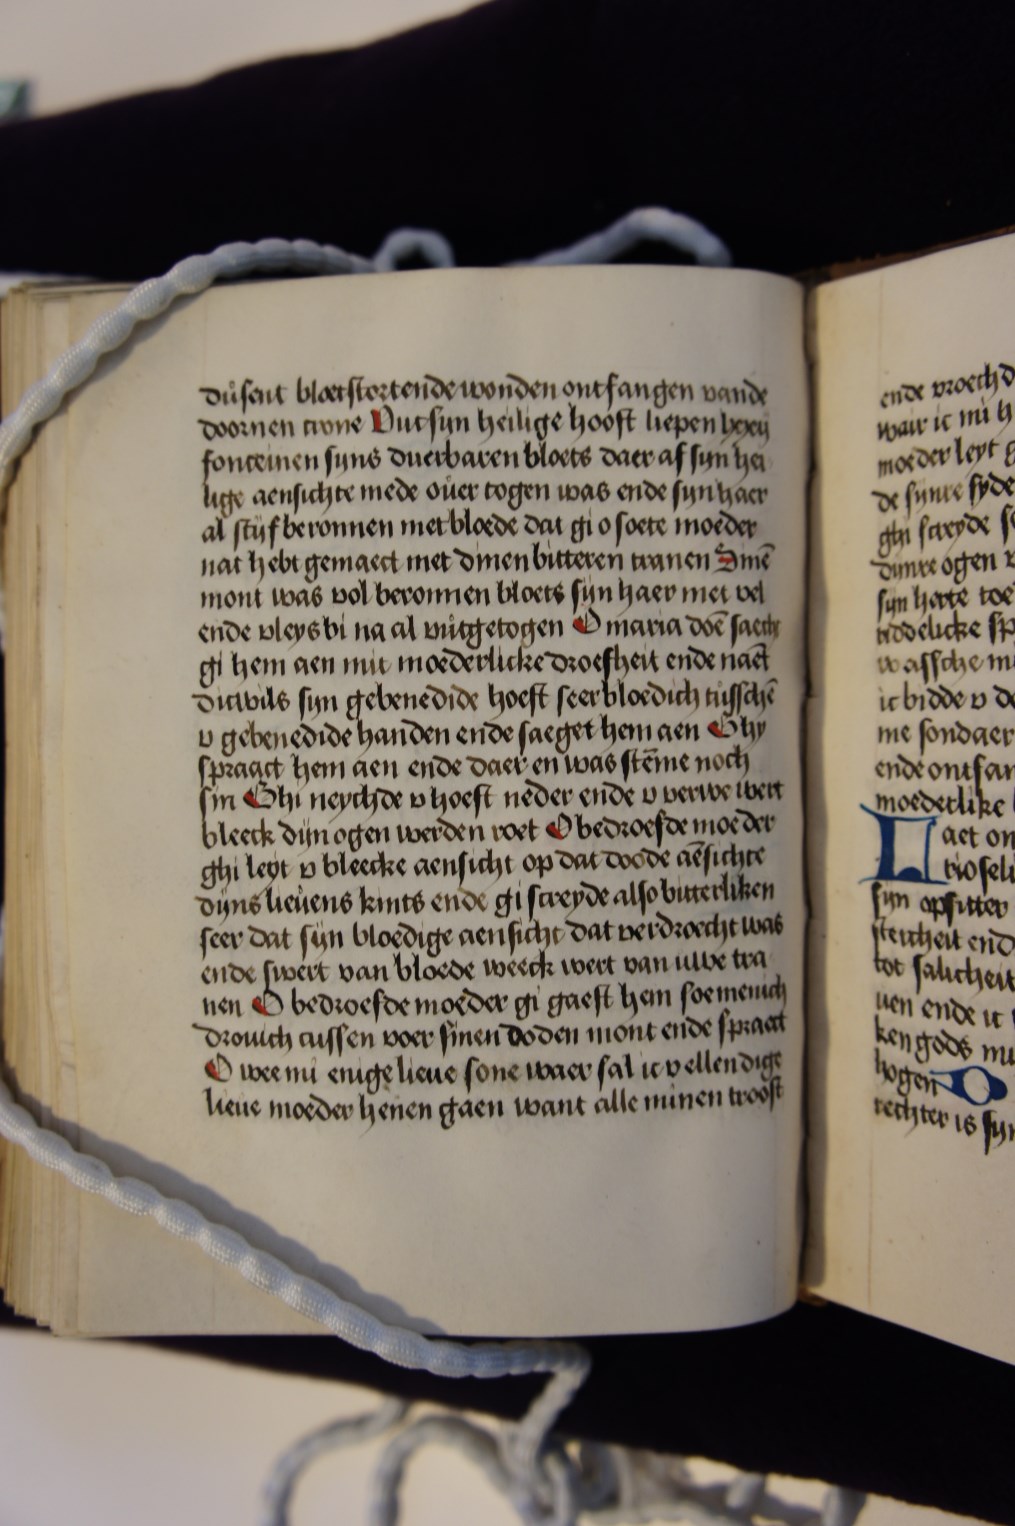 dusent bloetstortende wonden ontfangen vande
doornen crone Vut sijn heilige hooft liepen
fonteinen sijns duerbaren bloets daer af sijn hei
lige aensichte mede ouer togen was ende sijn haer
al stijf beronnen met bloede dat gi o soete moeder
nat hebt gemaect met dinen bitteren tranen Sinē
mont was vol beronnen bloets sijn haer met vel
ende vleys bi na al vutgetogen O maria doē saech
gi hem aen mit moederlicke droefheit ende naēt
dicwils sijn gebenedide hoeft seer bloedich tusschē
v gebenedide handen ende saeget hem aen Ghy
spraact hem aen ende daer en was stēme noch
sin Ghi neychde v hoeft neder ende v verwe wert
bleeck dijn ogen werden roet O bedroefde moeder
ghi leyt v bleecke aensicht op dat doode aēsichte
dijns lieuens kints ende gi screyde also bitterliken
seer dat sijn bloedige aensicht dat verdroecht was
ende swert van bloede weeck wert van uwe tra
nen O bedroefde moeder gi gaest hem soe menich
drouich cussen voer sinen doden mont ende spraect
O wee mi enige lieue sone waer sal ic v ellendige
lieue moeder henen gaen want alle minen troost
ende vroech
waer ic mi
moeder leyt
de sijnre syde
ghi screyde
dinre ogen
sijn herte toe
ic bidde v
me sondaer
ende ontfan
moederlike
Laet on
sijn opsitter
tot salicheit
uen ende ic
ken gods
hogen
rechter is sijn